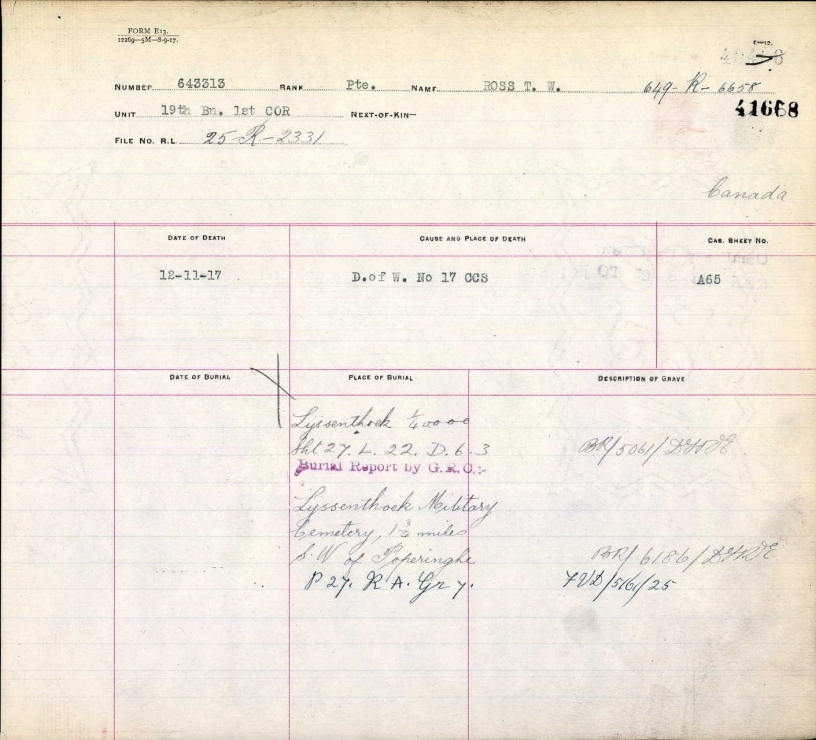 FORM E13.
12269—5M—8-9-17.
NUMBER 643313 RANK Pte. NAME ROSS T. W. 649-R-6658
UNIT 19th Bn. 1st COR NEXT-OF-KIN— 41668
FILE NO. R.L. 25-R-2331
Canada
DATE OF DEATH CAUSE AND PLACE OF DEATH CAS. SHEET NO.
12-11-17 D.of W. No 17 CCS A65
DATE OF BURIAL PLACE OF BURIAL DESCRIPTION OF GRAVE
Lyssenthoek 1/40000
Sht 27. L. 22. D. 6. 3 BR/5061/
Burial Report by G.R.C.:-
Lyssenthoek Military
Cemetery, 1¾ miles
S.W of Poperinghe BR/6186/
P 27. R A. Gr 7. FVD/5/6/25